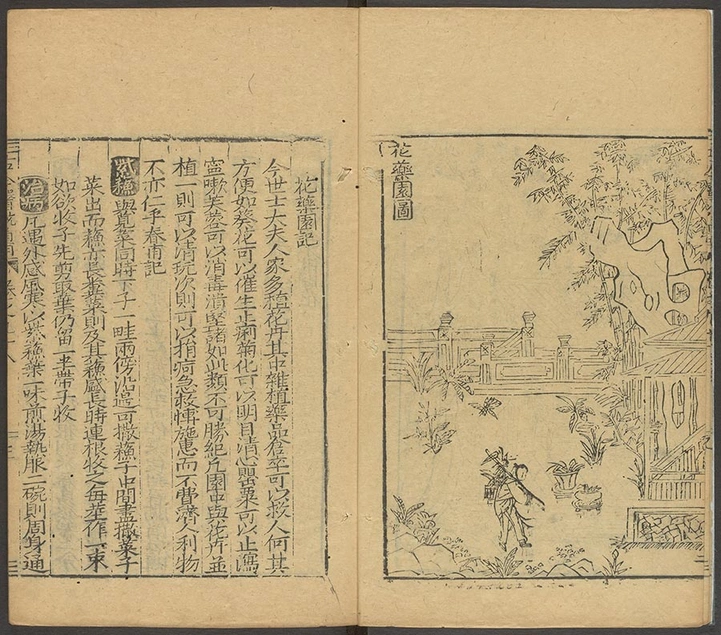 花藥園圖
花藥園記
今世士大夫人家多植花卉其中雜植藥品倉卒可以救人何其
方便如葵花可以催生止痢菊花可以明目清心罌粟可以止瀉
寧嗽芙蓉可以消毒潰堅諸如此類不可勝紀凡園中與花卉並
植一則可以清玩次則可以捐疴急救應而不費濟人利物
不亦仁乎春甫記
紫蘇與莧菜同時下子一畦兩傍沿邊可撒蘇子中間盡撒菜子
菜出而蘇亦長食菜則及其蘇盛長時連根收之每莖作一束
如欲收子先剪取葉仍留一莖帶子收
治病凡遇外感風寒以紫蘇葉一味煎湯熱服二碗則周身通